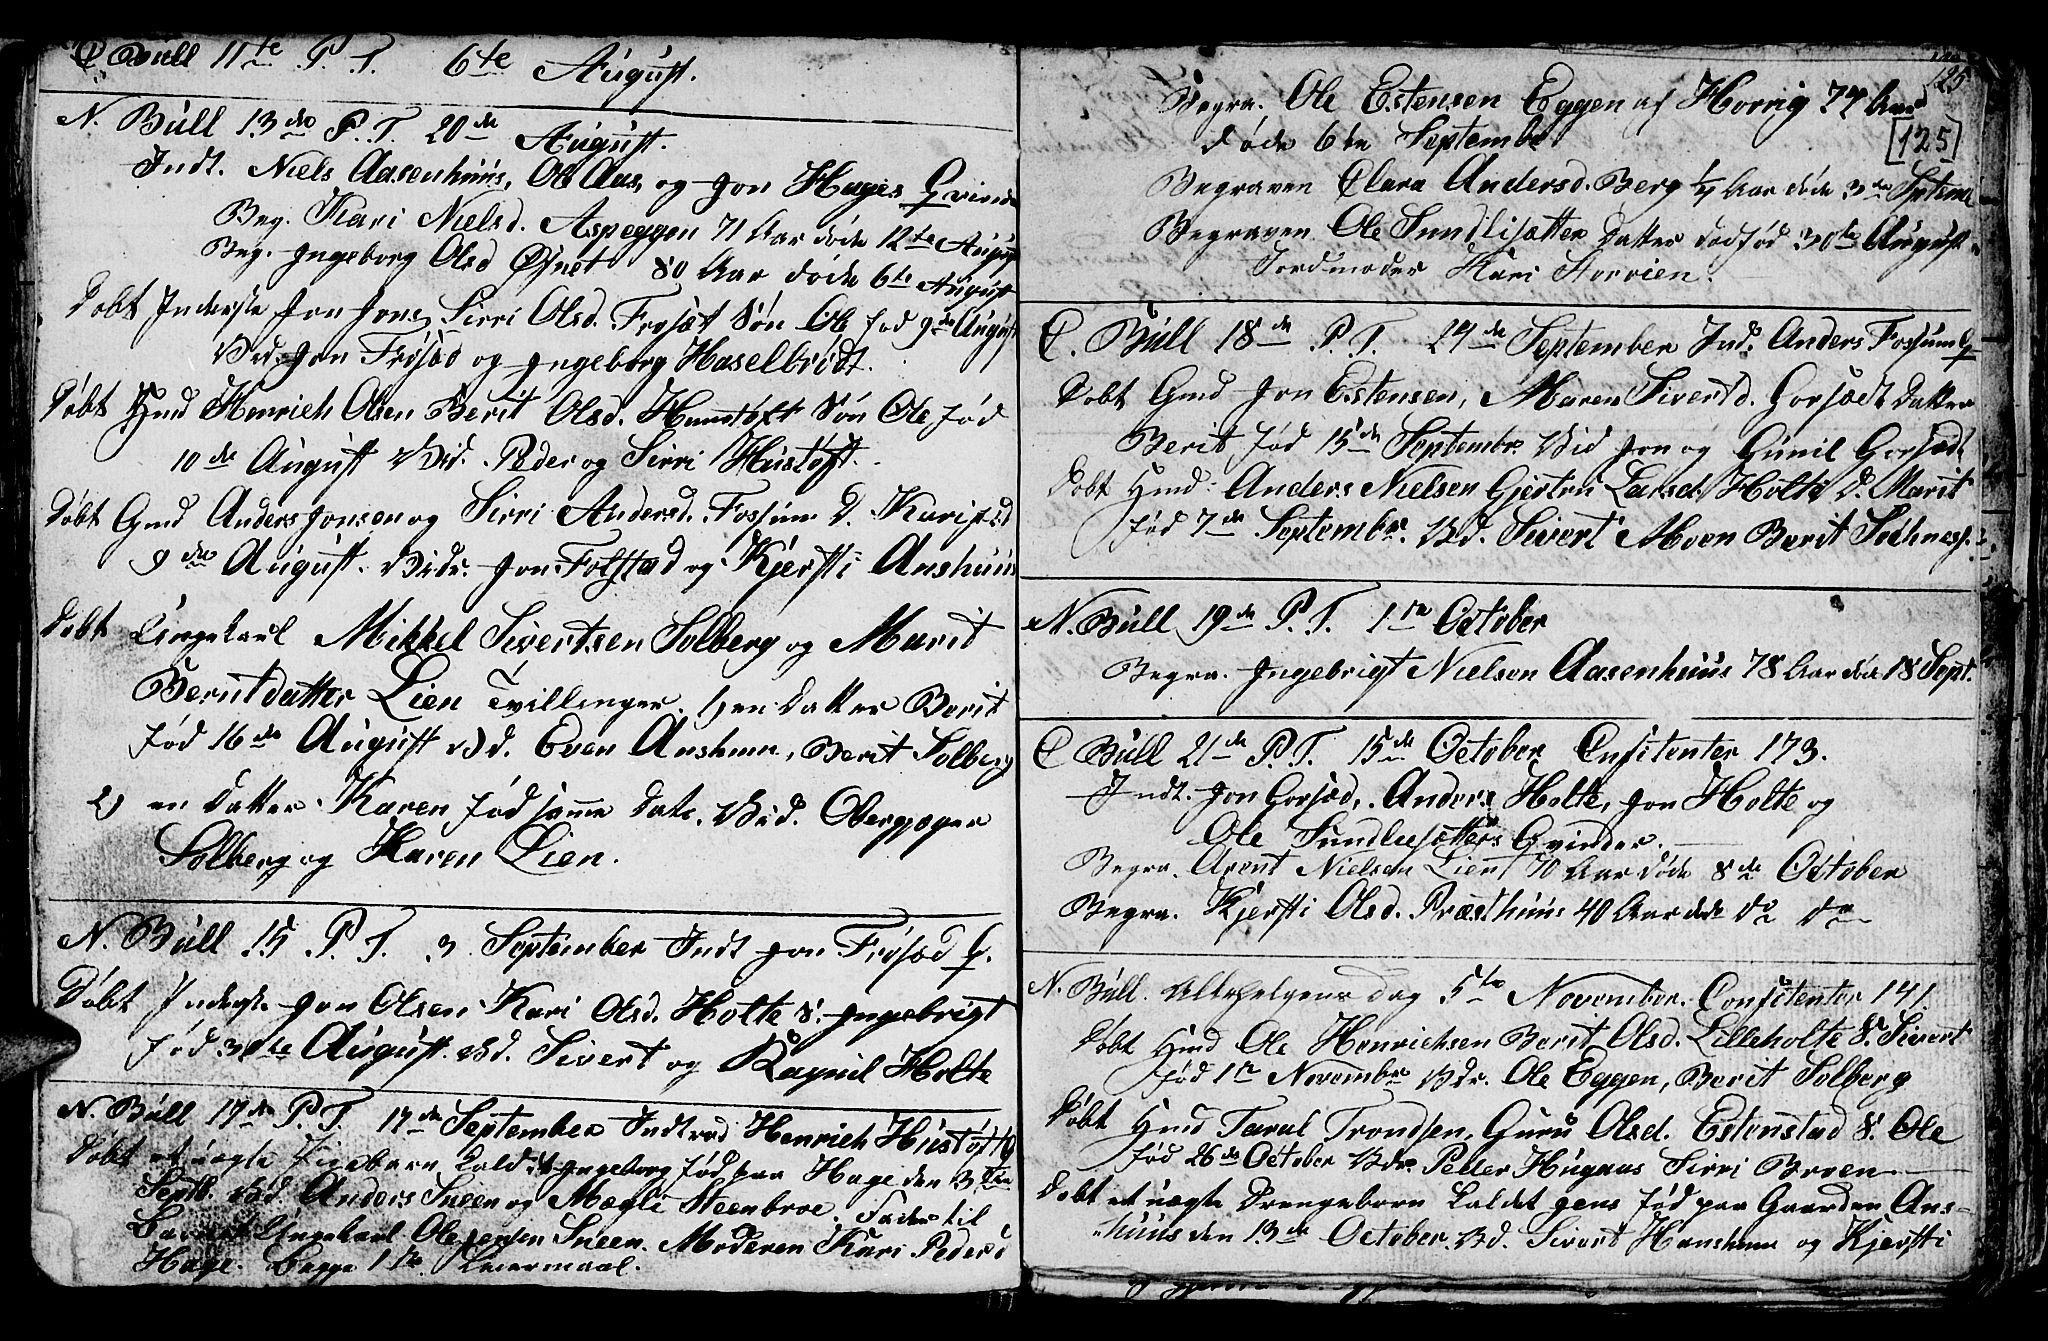 C Bull 11te P. T. 6te August.
N. Bull 13de P. T. 20de August.
Indt. Niels Aasenhuus, Ole Aas, og Jon Hages Qvinde
Beg. Kari Nielsd. Aspeggen 71 Aar døde 12te August
Beg. Ingeborg Olsd Øfnet 80 Aar døde 6te August
Døbt Inderste Jon Jons, Sirri Olsd. Frøsæt Søn Ole fød 9de August
Vid. Jon Frøsæd og Ingeborg Haselbridt.
Døbt Hmd Henrich Olsen Berit Olsd. Huustøft Søn Ole fød
10de August Vid. Peder og Sirri Hustøft.
Døbt Gmd Anders Jonsen og Sirri Andersd. Fossum D. Kari fød
9de August. Vidr. Jon Folstad og Kjersti Anshuus
Døbt Ungekarl Mikkel Sivertsen Solberg og Marit
Berntdatter Lien Tvillinger. 1) en Datter Berit
fød 16de August Vid. Even Anshuus, Berit Solberg
2) en Datter Karen fød samme Dato. Vid. Oberjæger
Solberg og Karen Lien.
N. Bull 15 P. T. 3 September Indt Jon Frøsæd Q.
Døbt Inderste Jon Olsen Kari Olsd. Holte S. Ingebrigt
fød 30te August. Vid. Sivert og Ragnil Holte
N. Bull 17de P. T. 17de September Indtræd Henrich Hustøft Q
Døbt et uægte Pigebarn kaldet Ingeborg fød paa Hage den 3die
Septb. Vid. Anders Sneen og Magli Steenbroe. Fader til
Barnet Ungekarl Ole Jensen Sneen. Moderen Kari Pedersd
Hage. Begge 1te Leiermaal.
125
[125]
Begra. Ole Estensen Eggen af Horrig 74 Aar
døde 6te Septembr
Begraven Clara Andersd. Berg ¼ Aar døde 3de Septemb
Begraven Ole Sundlisætter Datter dødfød 30te August
Jordmoder Kari Storvien.
C. Bull 18de P. T. 24de September Ind. Anders Fossum Q
Døbt Gmd Jon Estensen, Maren Sivertd. Gorsædt Datter
Berit fød 15de Septembr. Vid Jon og Gunil Gorsædt
Døbt Hmd. Anders Nielsen Gjertru Larsd. Holte D. Marit
fød 7de Septembr. Vid. Sivert Moen Berit Sochnesp.
N. Bull 19de P. T. 1te October
Begra. Ingebrigt Nielsen Aasenhuus 78 Aar død 18 Sept.
C Bull 21de P. T. 15de October Confitenter 173.
Indt. Jon Gorsæd, Anders Holte, Jon Holte og
Ole Sundlisætters Qvinder.
Begra. Arent Nielsen Lien 70 Aar døde 8de October
Begra. Kjersti Olsd. Præsthuus 40 Aar døde do do
N. Bull. Allehelgens Dag 5te November. Confitenter 141
Døbt Hmd Ole Henrichsen Berit Olsd. Lilleholte S. Sivert
fød 1te Novembr Vidr. Ole Eggen, Berit Solberg
Døbt Hmd Taral Trondsen, Guru Olsd. Estenstad S. Ole
fød 26de October Vidr. Peder Hugaas Sirri Broen
Døbt et uægte Drengebarn kaldet Jens fød paa Gaarden Ans-
huus den 13de October. Vid. Sivert Hanshuus og Kjersti